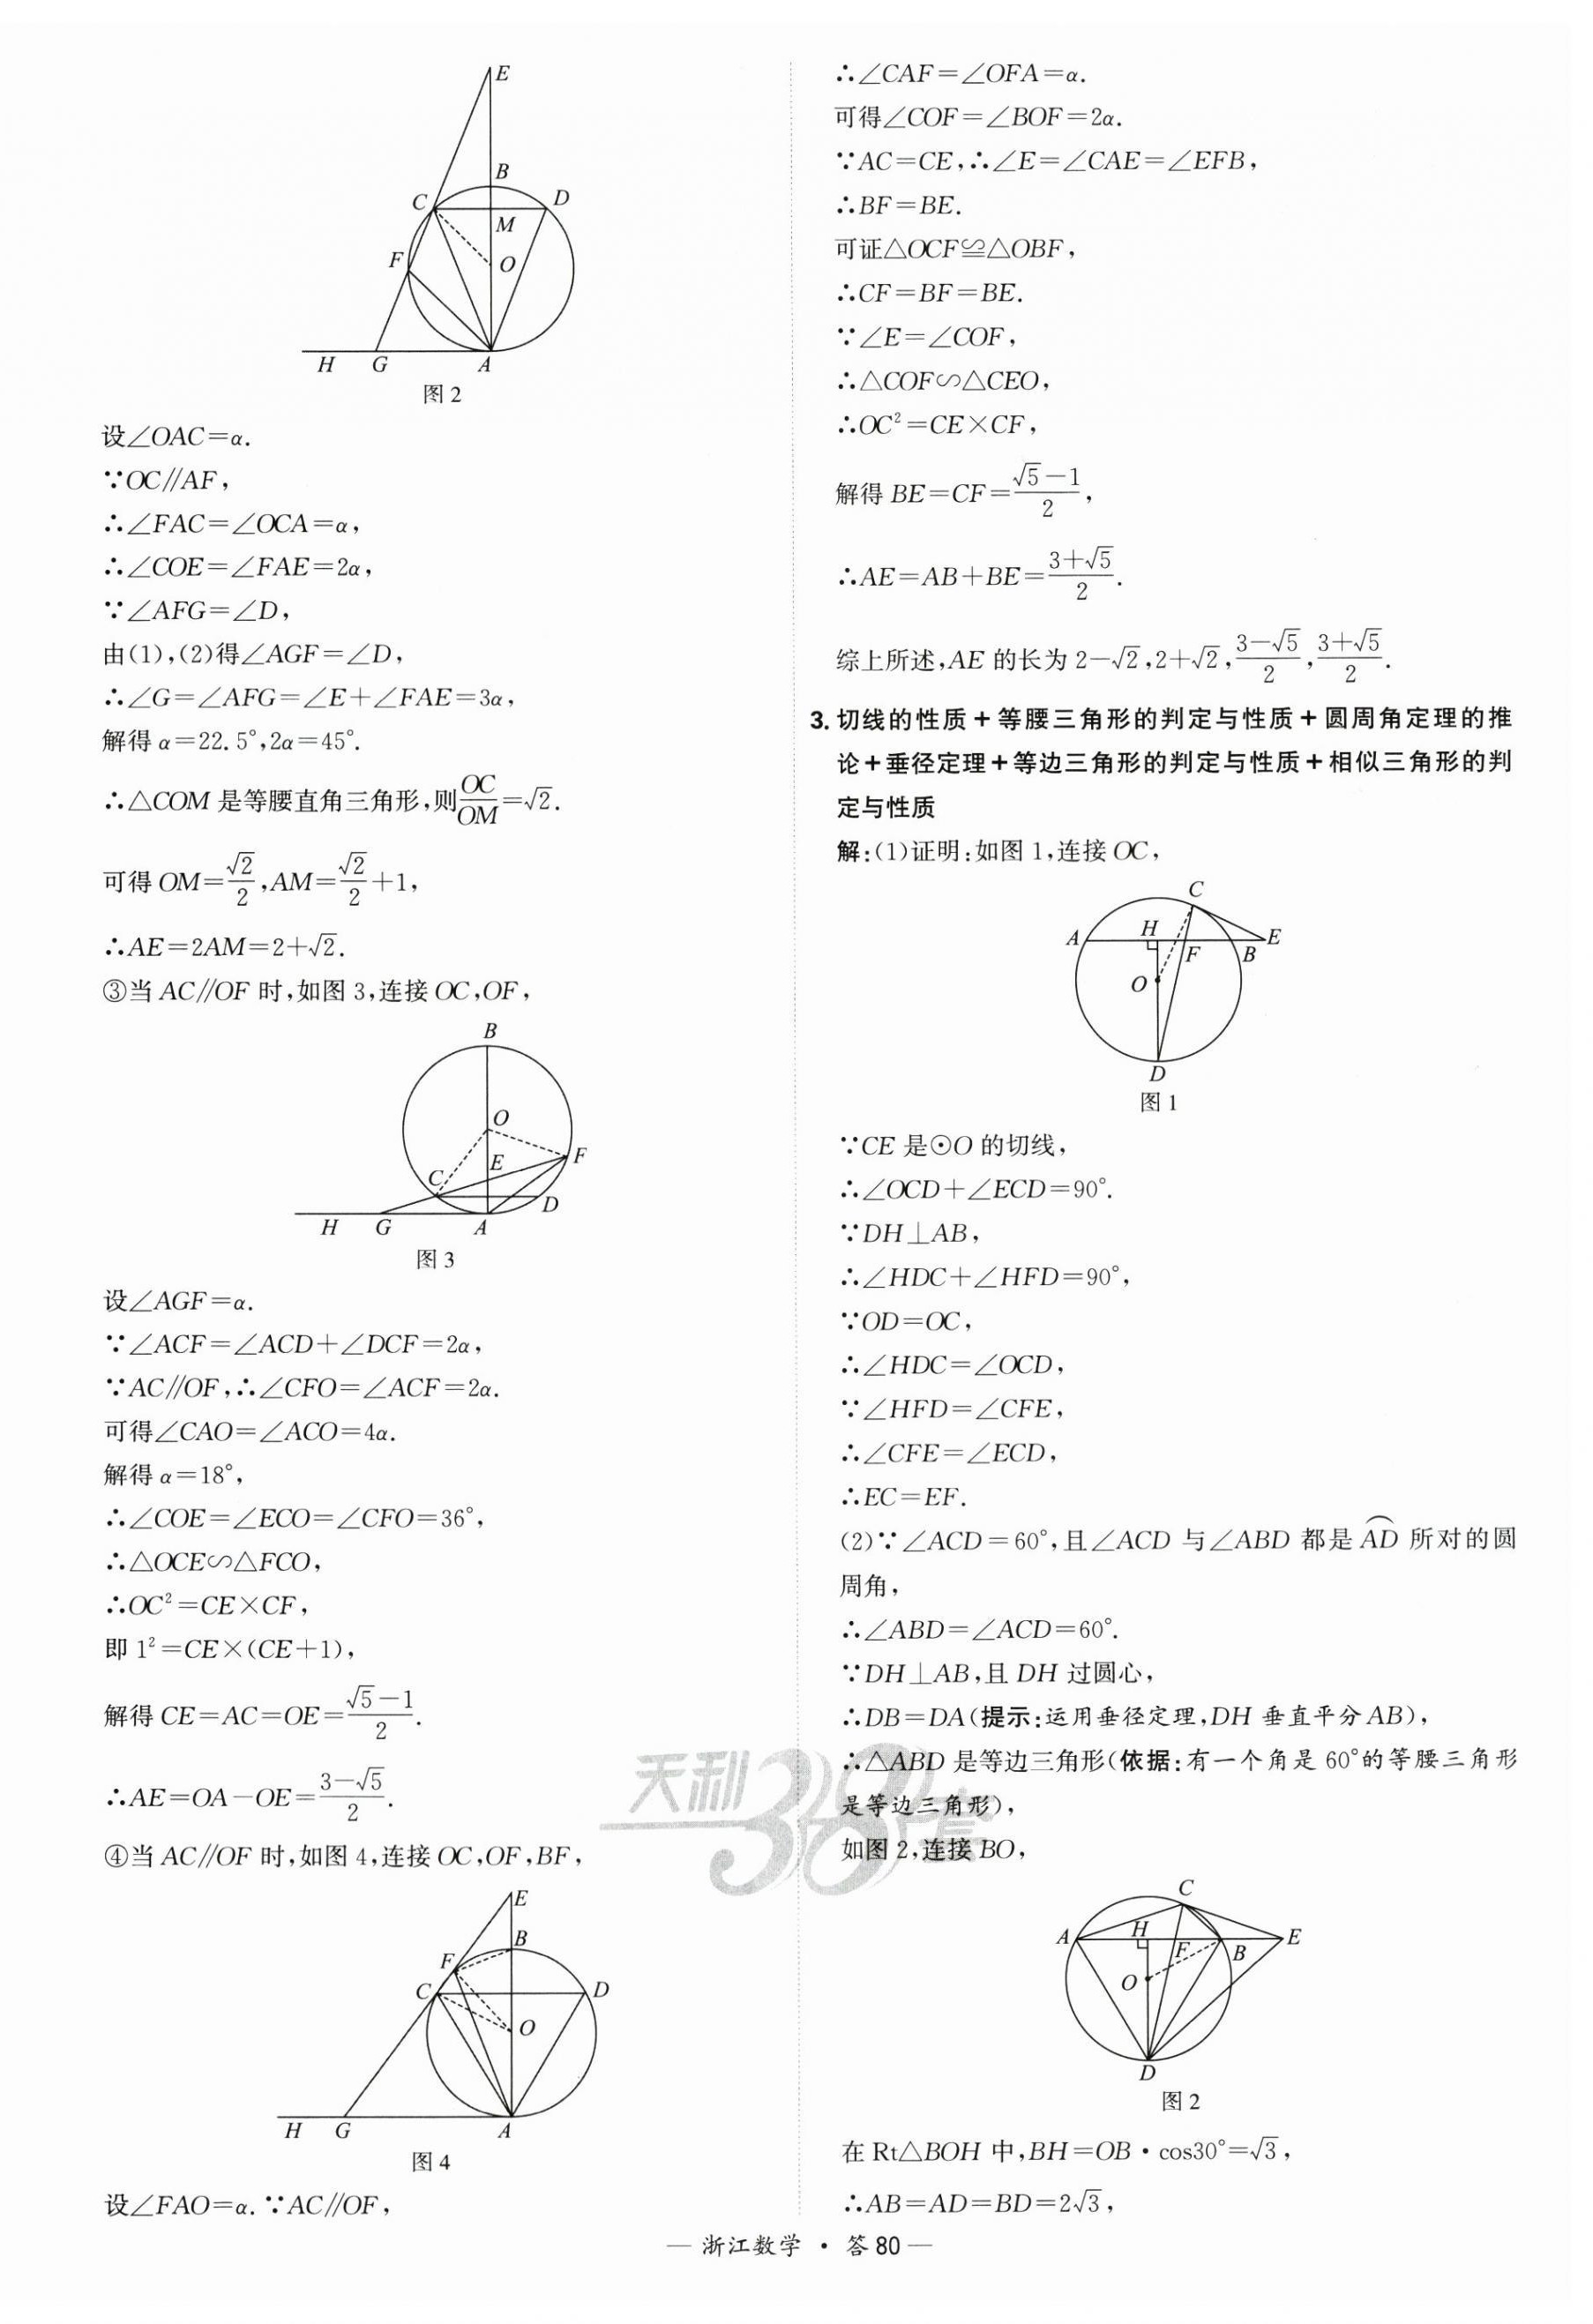 E
B
C
D
M
F
O
H
G
A
图2
设∠OAC=α.
∵OC∥AF,
∴∠FAC=∠OCA=α,
∴∠COE=∠FAE=2α,
∵∠AFG=∠D,
由(1),(2)得∠AGF=∠D,
∴∠G=∠AFG=∠E+∠FAE=3α,
解得α=22.5°,2α=45°.
∴△COM是等腰直角三角形,则OC/OM=√2.
可得OM=√2/2,AM=√2/2+1,
∴AE=2AM=2+√2.
③当AC∥OF时,如图3,连接OC,OF,
B
O
E
F
C
D
H
G
A
图3
设∠AGF=α.
∵∠ACF=∠ACD+∠DCF=2α,
∵AC∥OF,∴∠CFO=∠ACF=2α.
可得∠CAO=∠ACO=4α.
解得α=18°,
∴∠COE=∠ECO=∠CFO=36°,
∴△OCE∽△FCO,
∴OC²=CE×CF,
即1²=CE×(CE+1),
解得CE=AC=OE=(√5-1)/2.
∴AE=OA-OE=(3-√5)/2.
④当AC∥OF时,如图4,连接OC,OF,BF,
E
B
F
C
D
O
H
G
A
图4
设∠FAO=α.∵AC∥OF,
∴∠CAF=∠OFA=α.
可得∠COF=∠BOF=2α.
∵AC=CE,∴∠E=∠CAE=∠EFB,
∴BF=BE.
可证△OCF≌△OBF,
∴CF=BF=BE.
∵∠E=∠COF,
∴△COF∽△CEO,
∴OC²=CE×CF,
解得BE=CF=(√5-1)/2,
∴AE=AB+BE=(3+√5)/2.
综上所述,AE的长为2-√2,2+√2,(3-√5)/2,(3+√5)/2.
3.切线的性质+等腰三角形的判定与性质+圆周角定理的推
论+垂径定理+等边三角形的判定与性质+相似三角形的判
定与性质
解:(1)证明:如图1,连接OC,
C
A
H
E
F
B
O
D
图1
∵CE是⊙O的切线,
∴∠OCD+∠ECD=90°.
∵DH⊥AB,
∴∠HDC+∠HFD=90°,
∵OD=OC,
∴∠HDC=∠OCD,
∵∠HFD=∠CFE,
∴∠CFE=∠ECD,
∴EC=EF.
(2)∵∠ACD=60°,且∠ACD与∠ABD都是A͡D所对的圆
周角,
∴∠ABD=∠ACD=60°.
∵DH⊥AB,且DH过圆心,
∴DB=DA(提示:运用垂径定理,DH垂直平分AB),
∴△ABD是等边三角形(依据:有一个角是60°的等腰三角形
是等边三角形),
如图2,连接BO,
C
A
H
E
F
B
O
D
图2
在Rt△BOH中,BH=OB·cos30°=√3,
∴AB=AD=BD=2√3,
天利38套
—浙江数学·答80—